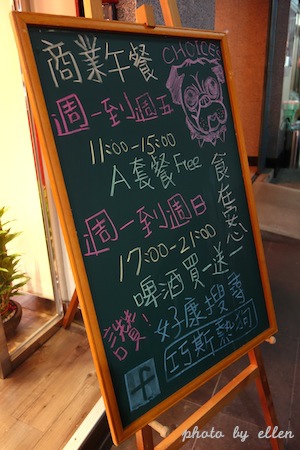 商業午餐
CHOICE's
週一到週五
11:00-15:00
A套餐Free
週一到週日
17:00-21:00
啤酒買一送一
讚!
好康搜專
巧斯熱狗
f
photo by ellen